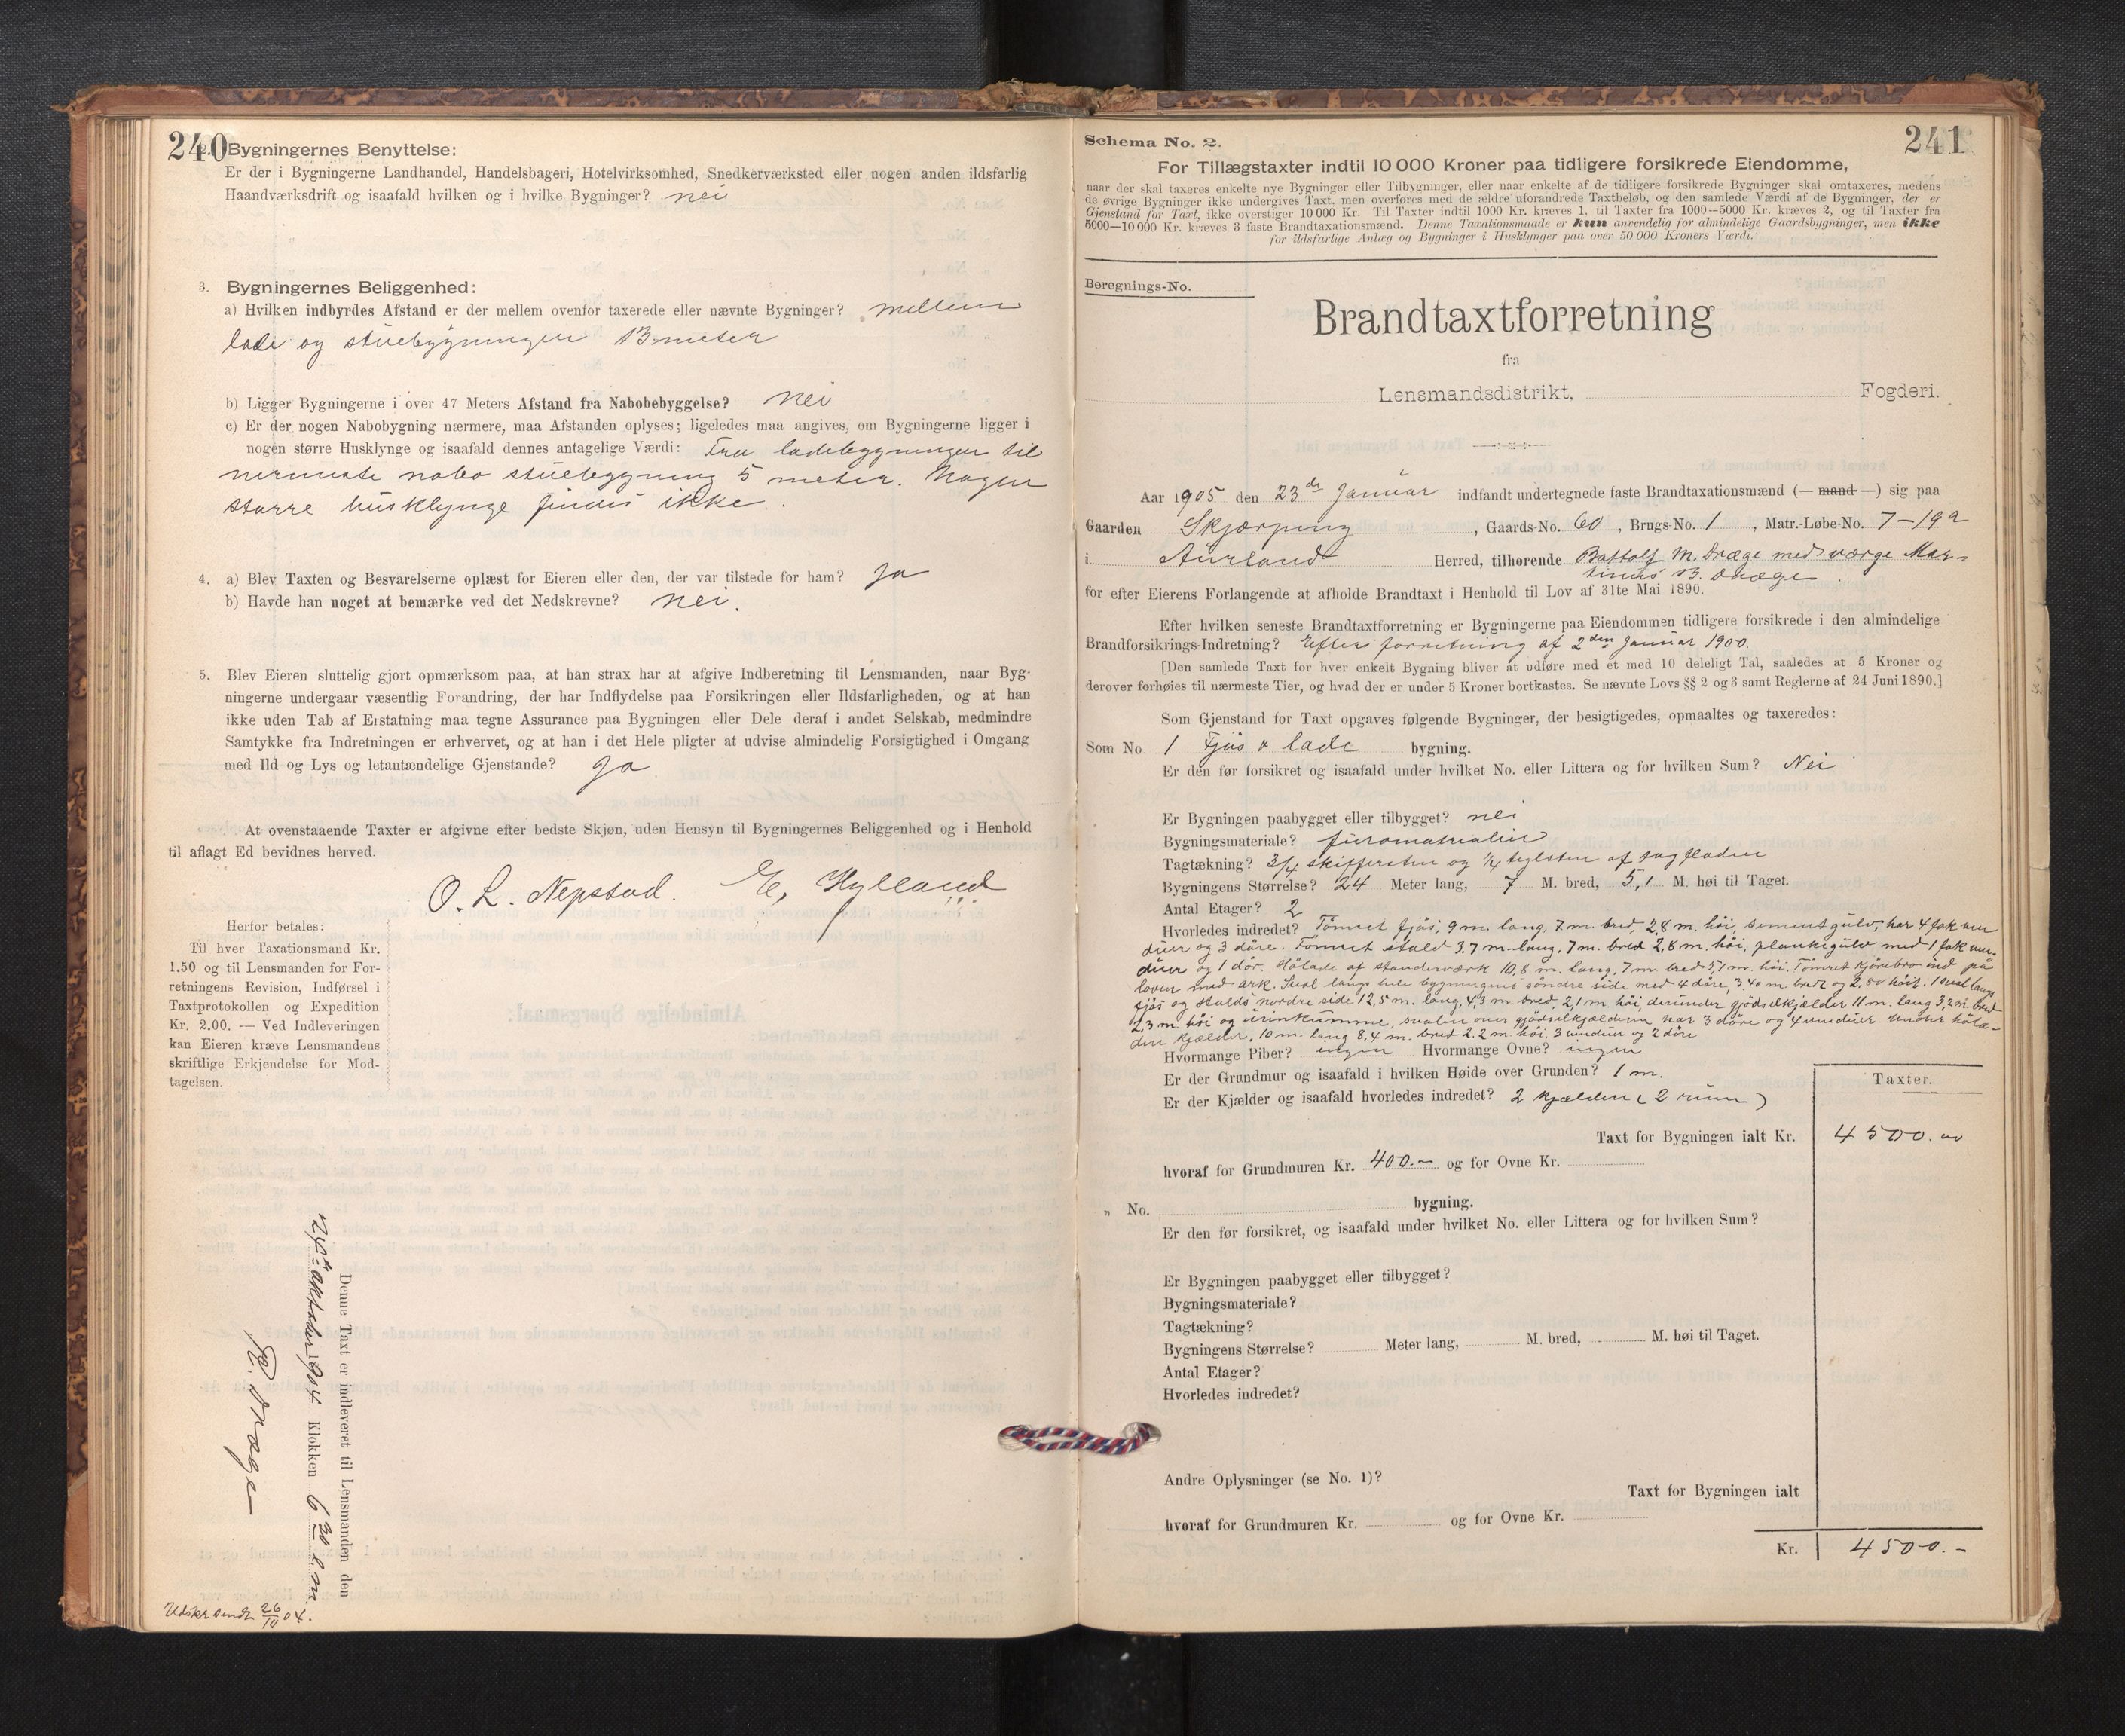 240
2. Bygningernes Benyttelse:
Er der i Bygningerne Landhandel, Handelsbageri, Hotelvirksomhed, Snedkerværksted eller nogen anden ildsfarlig
Haandværksdrift og isaafald hvilken og i hvilke Bygninger? nei
3. Bygningernes Beliggenhed:
a) Hvilken indbyrdes Afstand er der mellem ovenfor taxerede eller nævnte Bygninger? mellem
lade og stuebygningen 13 meter
b) Ligger Bygningerne i over 47 Meters Afstand fra Nabobebyggelse? Nei
c) Er der nogen Nabobygning nærmere, maa Afstanden oplyses; ligeledes maa angives, om Bygningerne ligger i
nogen større Husklynge og isaafald dennes antagelige Værdi: Fra ladebygningen til
nermeste nabo stuebygning 5 meter. Nogen
storre husklynge findes ikke.
4. a) Blev Taxten og Besvarelserne oplæst for Eieren eller den, der var tilstede for ham? Ja
b) Havde han noget at bemærke ved det Nedskrevne? nei.
5. Blev Eieren sluttelig gjort opmærksom paa, at han strax har at afgive Indberetning til Lensmanden, naar Byg-
ningerne undergaar væsentlig Forandring, der har Indflydelse paa Forsikringen eller Ildsfarligheden, og at han
ikke uden Tab af Erstatning maa tegne Assurance paa Bygningen eller Dele deraf i andet Selskab, medmindre
Samtykke fra Indretningen er erhvervet, og at han i det Hele pligter at udvise almindelig Forsigtighed i Omgang
med Ild og Lys og letantændelige Gjenstande? ja
At ovenstaaende Taxter er afgivne efter bedste Skjøn, uden Hensyn til Bygningernes Beliggenhed og i Henhold
til aflagt Ed bevidnes herved.
O. L. Nepstad. E. Hylland
Herfor betales:
Til hver Taxationsmand Kr.
1.50 og til Lensmanden for For-
retningens Revision, Indførsel i
Taxtprotokollen og Expedition
Kr. 2.00. — Ved Indleveringen
kan Eieren kræve Lensmandens
skriftlige Erkjendelse for Mod-
tagelsen.
Denne Taxt er indleveret til Lensmanden den
24de oktober 1904 Klokken 6 30 e.m.
R. Dræge
Udskr sendt 26/10 04.
241
Schema No. 2.
For Tillægstaxter indtil 10 000 Kroner paa tidligere forsikrede Eiendomme,
naar der skal taxeres enkelte nye Bygninger eller Tilbygninger, eller naar enkelte af de tidligere forsikrede Bygninger skal omtaxeres, medens
de øvrige Bygninger ikke undergives Taxt, men overføres med de ældre uforandrede Taxtbeløb, og den samlede Værdi af de Bygninger, der er
Gjenstand for Taxt, ikke overstiger 10 000 Kr. Til Taxter indtil 1000 Kr. kræves 1, til Taxter fra 1000—5000 Kr. kræves 2, og til Taxter fra
5000—10 000 Kr. kræves 3 faste Brandtaxationsmænd. Denne Taxationsmaade er kun anvendelig for almindelige Gaardsbygninger, men ikke
for ildsfarlige Anlæg og Bygninger i Husklynger paa over 50 000 Kroners Værdi.
Beregnings-No.
Brandtaxtforretning
fra
Lensmandsdistrikt, Fogderi.
Aar 1905 den 23de Januar indfandt undertegnede faste Brandtaxationsmænd (— mand —) sig paa
Gaarden Skjærping, Gaards-No. 60, Brugs-No. 1, Matr.-Løbe-No. 7-19a
i Aurland Herred, tilhørende Battolf M. Dræge med værge Mar-
tinus B. Dræge
for efter Eierens Forlangende at afholde Brandtaxt i Henhold til Lov af 31te Mai 1890.
Efter hvilken seneste Brandtaxtforretning er Bygningerne paa Eiendommen tidligere forsikrede i den almindelige
Brandforsikrings-Indretning? Efter forretning af 2den Januar 1900.
[Den samlede Taxt for hver enkelt Bygning bliver at udføre med et med 10 deleligt Tal, saaledes at 5 Kroner og
derover forhøies til nærmeste Tier, og hvad der er under 5 Kroner bortkastes. Se nævnte Lovs §§ 2 og 3 samt Reglerne af 24 Juni 1890.]
Som Gjenstand for Taxt opgaves følgende Bygninger, der besigtigedes, opmaaltes og taxeredes:
Som No. 1 Fjøs & lade bygning.
Er den før forsikret og isaafald under hvilket No. eller Littera og for hvilken Sum? Nei
Er Bygningen paabygget eller tilbygget? nei
Bygningsmateriale? furomaterialier
Tagtækning? 3/4 skiffersten og 1/4 teglsten af tagfladen
Bygningens Størrelse? 24 Meter lang, 7 M. bred, 5,1 M. høi til Taget.
Antal Etager? 2
Hvorledes indredet? Tømret fjøs, 9 m. lang, 7 m. bred, 2,8 m. høi, sementgulv, har 4 fak vin
duer og 3 døre. Tømret stald 3,7 m. lang, 7 m. bred 2,8 m. høi, plankegulv med 1 fak vin-
duer og 1 dør. Hølade af standerværk 10,8 m. lang, 7 m. bred 5,1 m. høi. Tømret kjørebro ind på
loven med ark. Sval langs hele bygningens søndre side med 4 døre, 3,40 m. bred og 2,80 høit. 1 sval langs
fjøs og stalds nordre side 12,5 m. lang, 4,3 m. bred, 2,1 m. høi, derunder gjødselkjælder 11 m. lang 3,2 m. bred
2,3 m. høi og urinkumme, svalen over gjødselkjælderen har 3 døre og 4 vinduer. Under høla-
den kjælder, 10 m. lang 8,4 m. bred 2.2 m. høi, 3 vinduer og 2 døre
Hvormange Piber? ingen Hvormange Ovne? ingen
Er der Grundmur og isaafald i hvilken Høide over Grunden? 1 m.
Er der Kjælder og isaafald hvorledes indredet? 2 kjældere (2 rum)
Taxter.
Taxt for Bygningen ialt Kr. 4500.
hvoraf for Grundmuren Kr. 400.— og for Ovne Kr.
„ No. bygning.
Er den før forsikret, og isaafald under hvilket No. eller Littera og for hvilken Sum?
Er Bygningen paabygget eller tilbygget?
Bygningsmateriale?
Tagtækning?
Bygningens Størrelse? Meter lang, M. bred, M. høi til Taget.
Antal Etager?
Hvorledes indredet?
Andre Oplysninger (se No. 1)?
Taxt for Bygningen ialt
hvoraf for Grundmuren Kr. og for Ovne Kr.
Kr. 4500.—